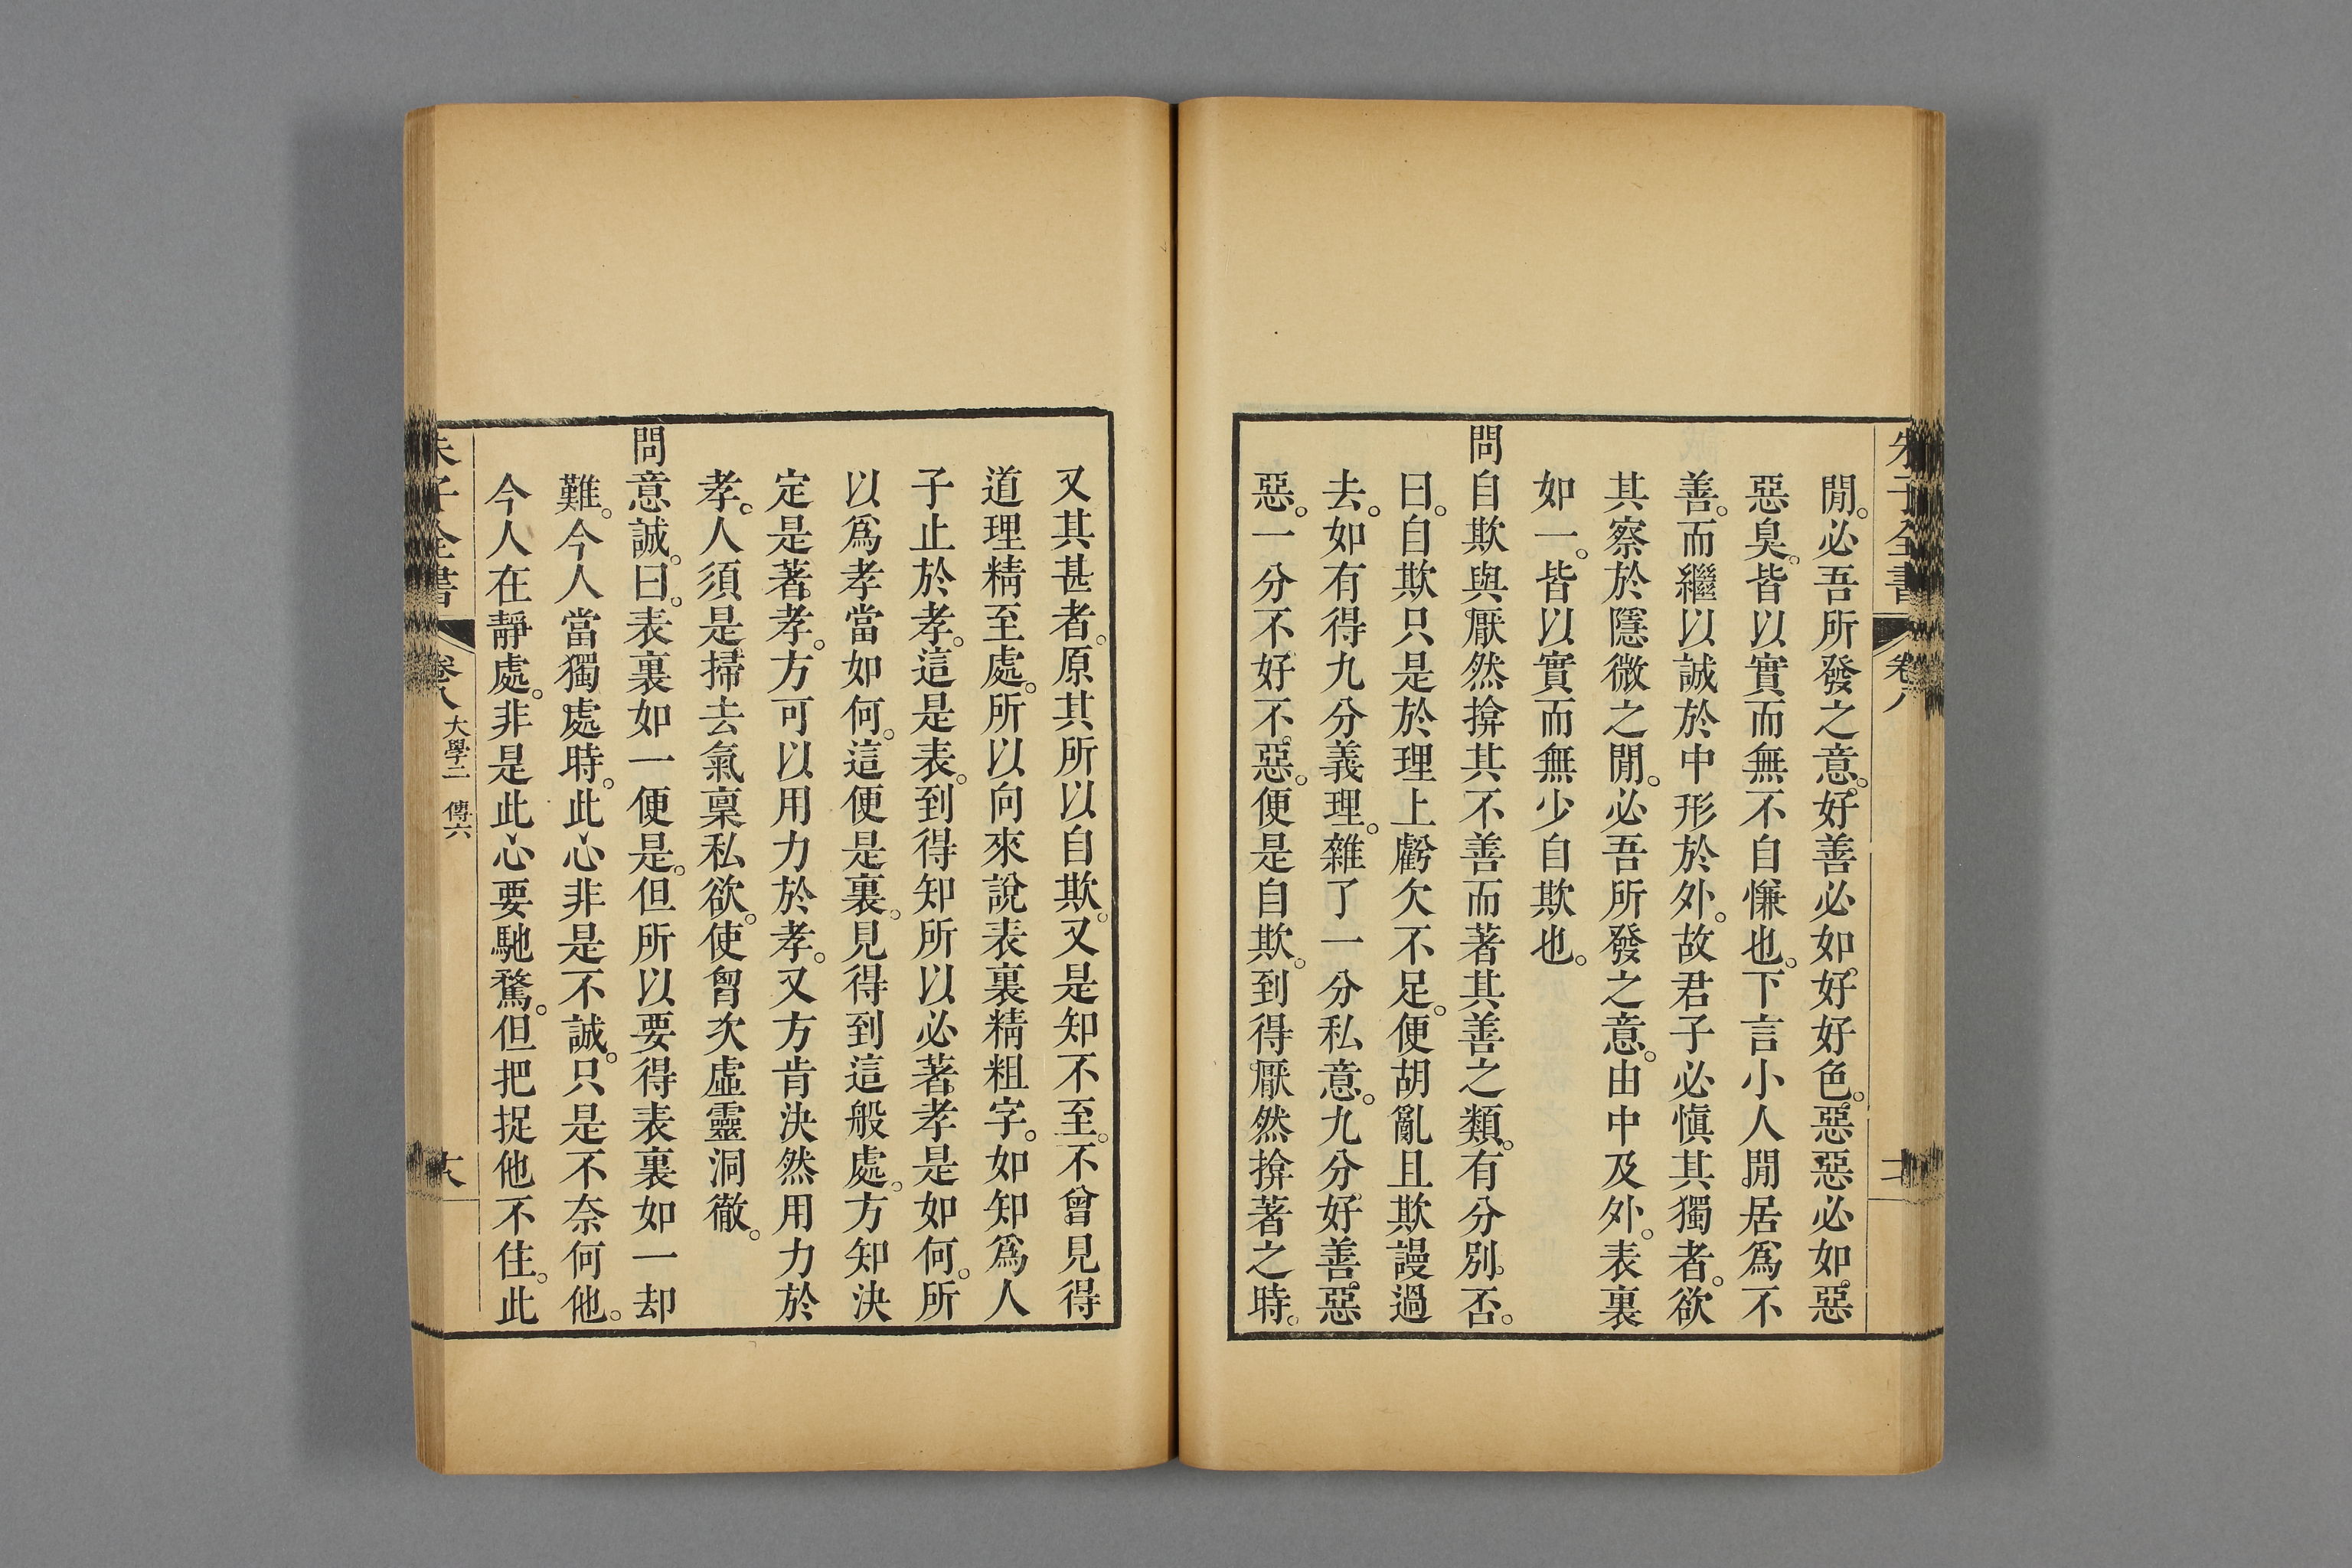 朱子全書 卷八
閒。必吾所發之意。好善必如好好色。惡惡必如惡
惡臭。皆以實而無不自慊也。下言小人閒居爲不
善。而繼以誠於中形於外。故君子必愼其獨者。欲
其察於隱微之閒。必吾所發之意。由中及外。表裏
如一。皆以實而無少自欺也。
問自欺與厭然揜其不善而著其善之類。有分別否。
曰。自欺只是於理上虧欠不足。便胡亂且欺謾過
去。如有得九分義理。雜了一分私意。九分好善惡
惡。一分不好不惡。便是自欺。到得厭然揜著之時。
又其甚者。原其所以自欺。又是知不至。不曾見得
道理精至處。所以向來說表裏精粗字。如知爲人
子止於孝。這是表。到得知所以必著孝是如何。所
以爲孝當如何。這便是裏。見得到這般處。方知決
定是著孝。方可以用力於孝。又方肯決然用力於
孝。人須是掃去氣稟私欲。使胷次虛靈洞徹。
問意誠。曰。表裏如一便是。但所以要得表裏如一却
難。今人當獨處時。此心非是不誠。只是不奈何他。
今人在靜處。非是此心要馳騖。但把捉他不住。此
朱子全書 卷八 大學二 傳六